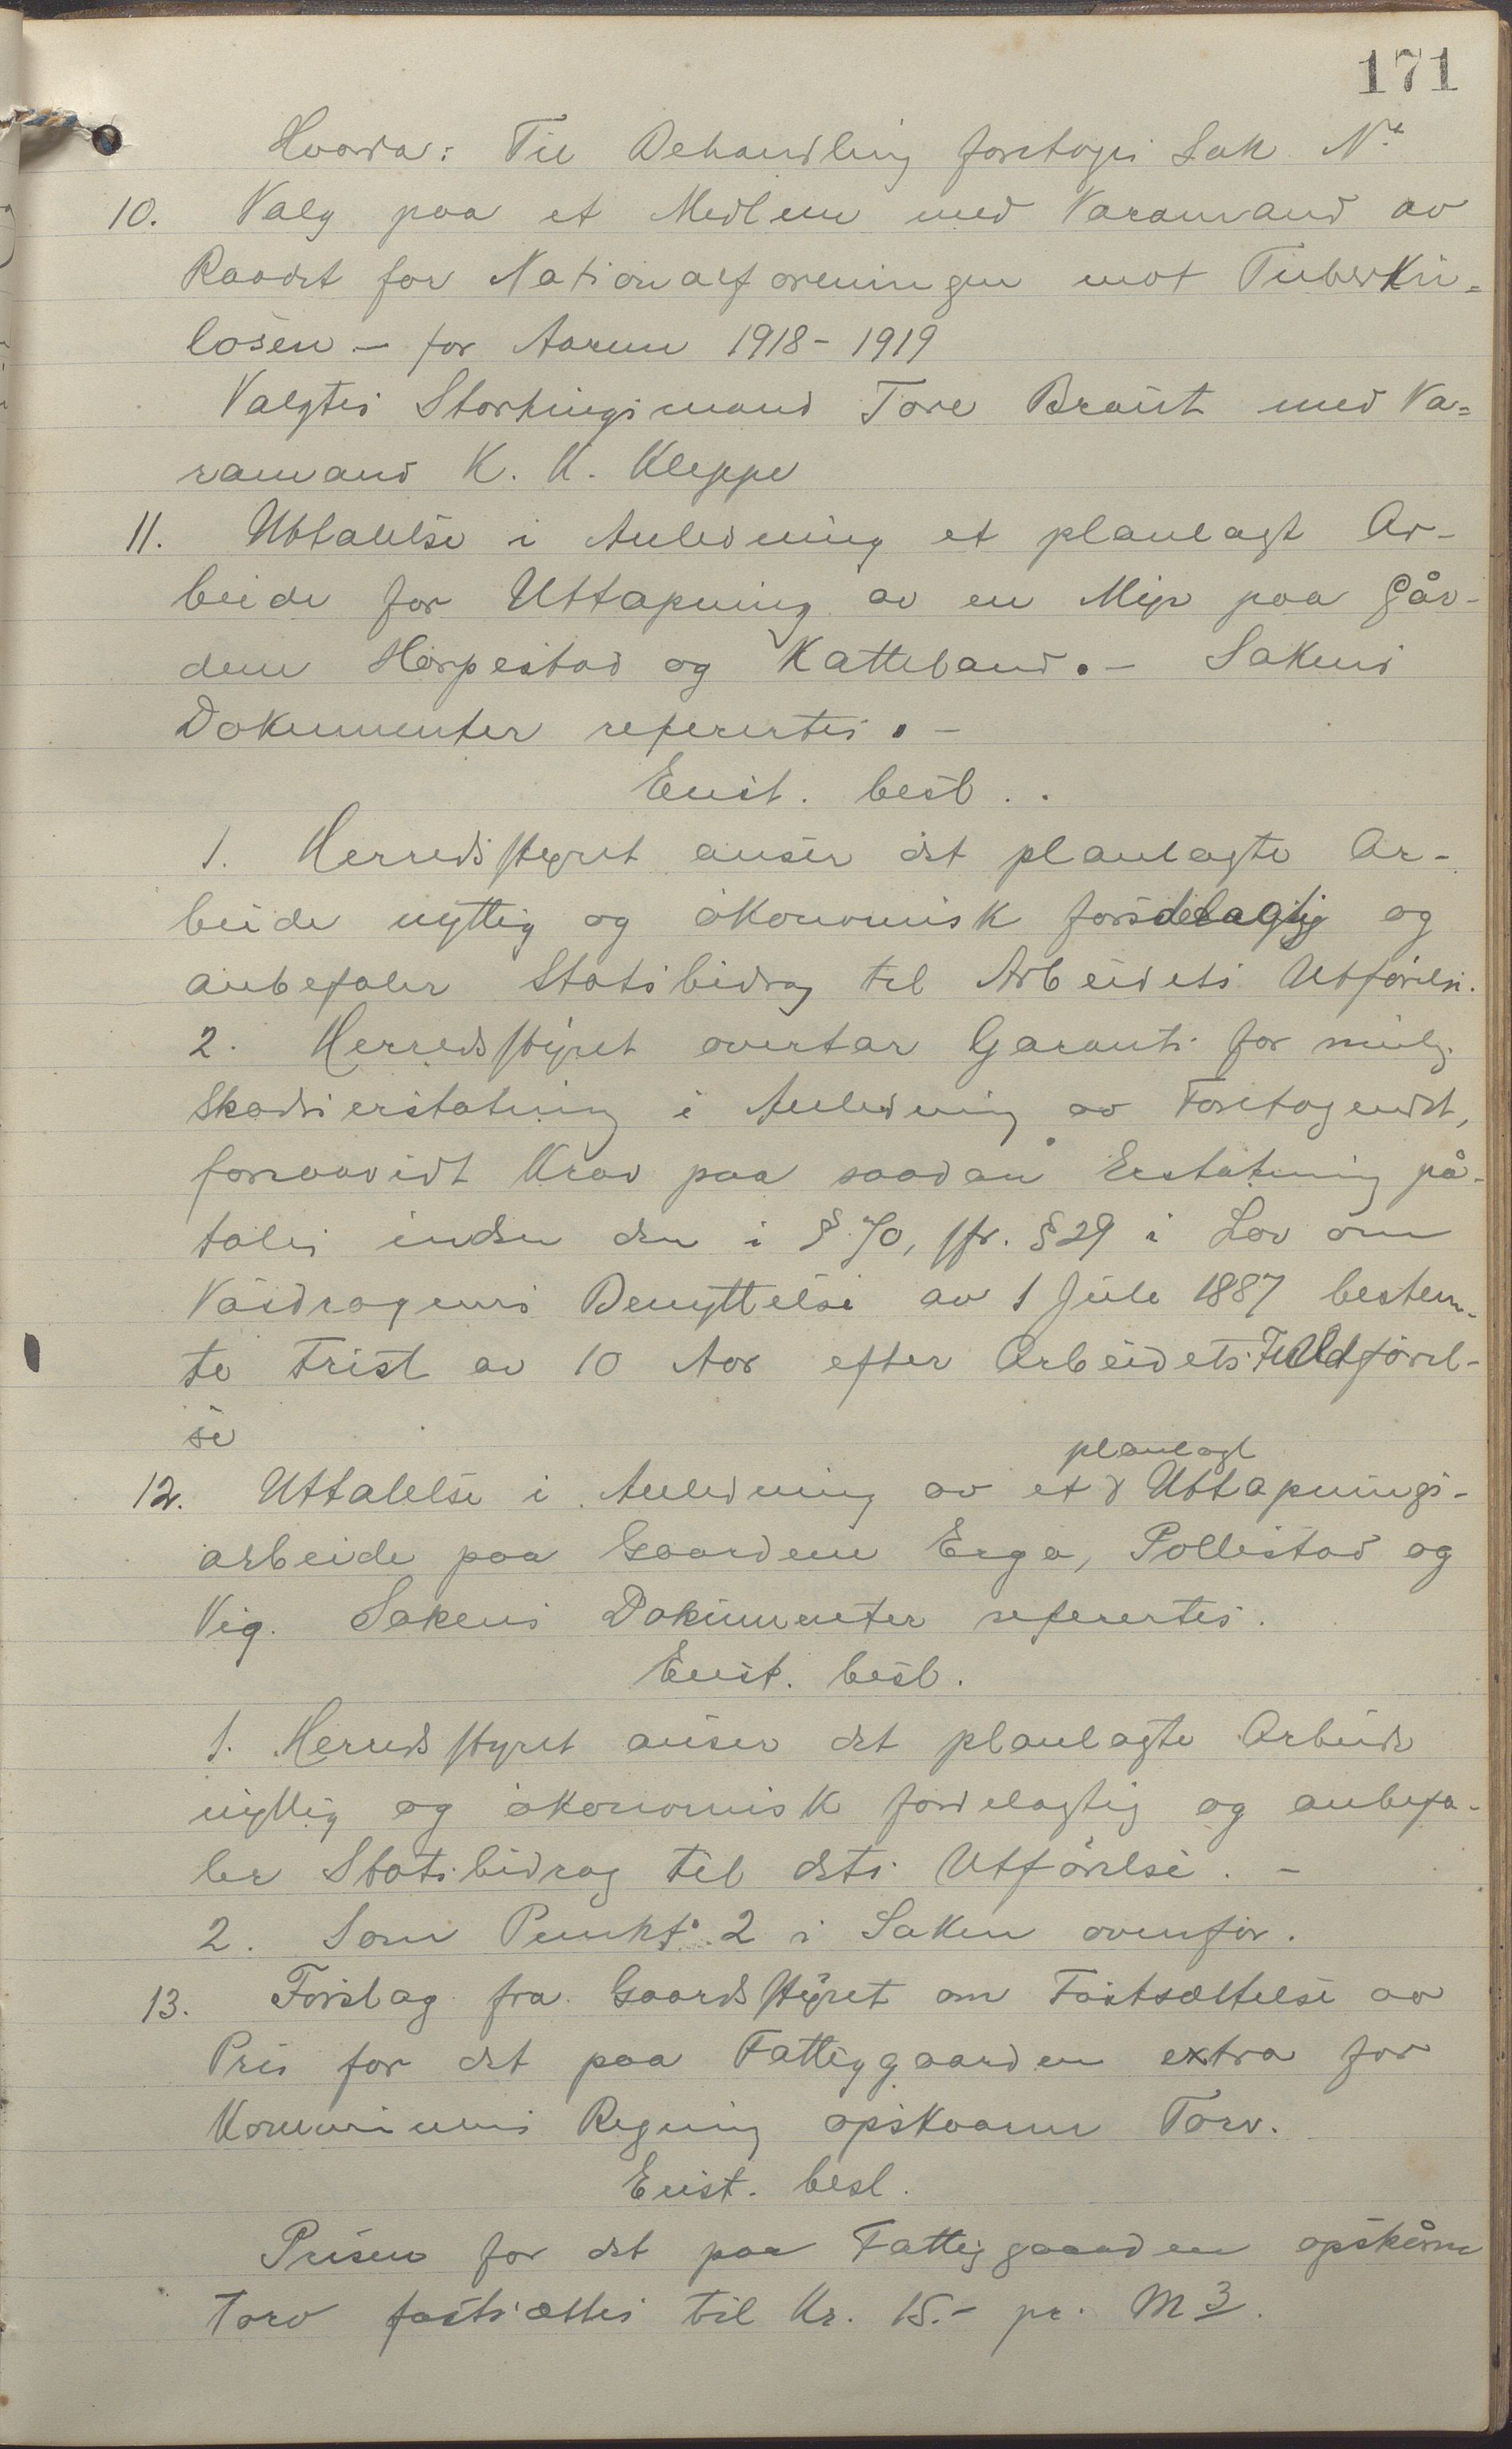 171
Hvorda: Til Behandling foretoges Sak No
10. Valg paa et Medlem med Varamand av
Raadet for Nationalforeningen mot Tuberku=
losen – for Aarene 1918 – 1919
Valgtes Stortingsmand Tore Braut med Va=
ramand K. K. Kleppe
11. Uttalelse i Anledning et planlagt Ar-
beide for Uttapning av en Myr paa Går-
dene Horpestad og Katteland. – Sakens
Dokumenter refertes. –
Enst. besl.
1. Herredsstyret anser det planlagte Ar-
beide nyttig og økonomisk fordelagtig og
anbefaler Statsbidrag til Arbeidets Utførelse.
2. Herredsstyret overtar Garanti for mulig
Skadeserstatning i Anledning av Foretagendet,
forsaavidt Krav paa saadan Erstatning på-
tales inden den i § 70, jfr. § 29 i Lov om
Vasdragenes Benyttelse av 1 Juli 1887 bestem-
te Frist av 10 Aar efter Arbeidets Fuldførel-
se
planlagt
12. Uttalelse i Anledning av et Uttapnings-
arbeide paa Gaardene Erga, Pollestad og
Vig. Sakens Dokumenter refertes.
Enst. besl.
1. Herredsstyret anser det planlagte Arbeide
nyttig og økonomisk fordelagtig og anbefa-
ler Statsbidrag til dets Utførelse. –
2. Som Punkt 2 i Saken ovenfor.
13. Forslag fra Gaardsstyret om Fastsættelse av
Pris for det paa Fattiggaarden extra for
Kommunens Regning opskaarne Torv.
Enst. besl.
Prisen for det paa Fattiggaarden opskårne
Torv fastsættes til Kr. 15.– pr. M3.